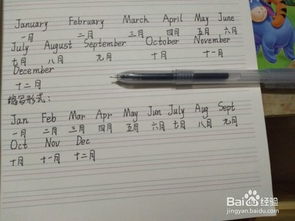 January February March April May June
一月 二月 三月 四月 五月 六月
July August September October November
七月 八月 九月 十月 十一月
December
十二月
缩写形式:
Jan Feb Mar Apr May Jun July Aug Sept
一月 二月 三月 四月 五月 六月 七月 八月 九月
Oct Nov Dec
十月 十一月 十二月
Baidu 经验
jingyan.baidu.com